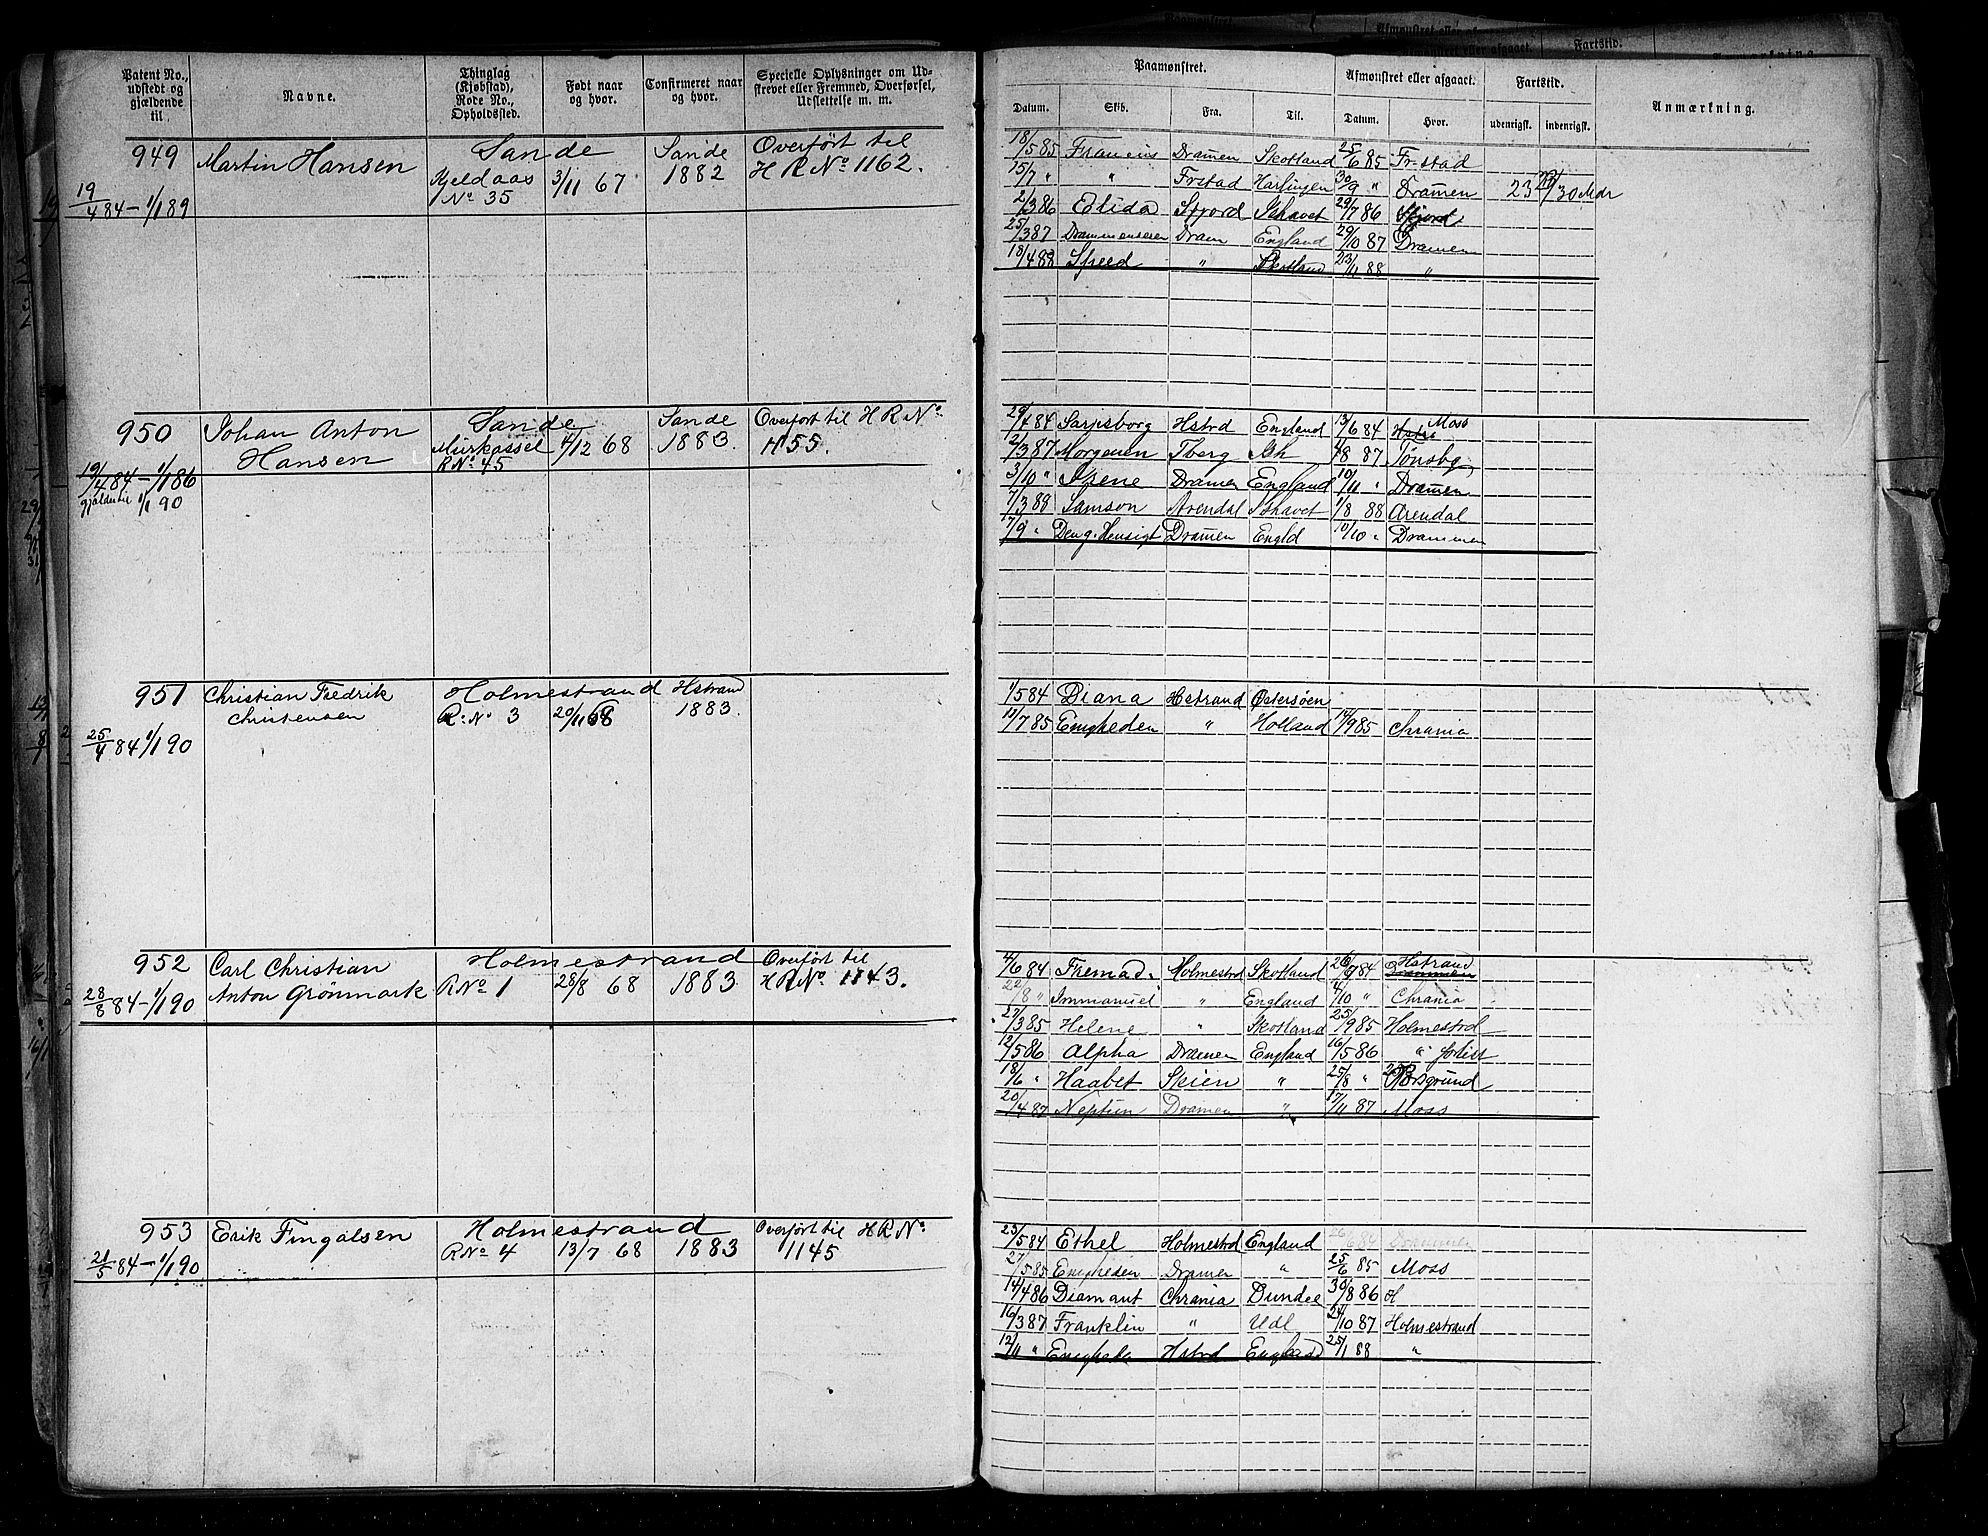 Patent No., udstedt og gjældende til
Navne.
Thinglag (Kjøbstad), Rode No., Opholdssted.
Født naar og hvor.
Confirmeret naar og hvor.
Specielle Oplysninger om Udskrevet eller Fremmed, Overførsel, Udslettelse m. m.
949 Martin Hansen Sande Sande Overført til
Kjeldaas 3/11 67 1882 H R No 1162.
No 35
19/4 84 – 1/1 89
950 Johan Anton Sande Sande Overført til H R No
Hansen Murkassel 4/12 68 1883. 1155.
R No 45
19/4 84 – 1/1 86
gjælder til 1/1 90
951 Christian Fredrik Holmestrand Hstrand
Christensen R. No 3 20/11 68 1883.
25/4 84 1/1 90
952 Carl Christian Holmestrand Overført til
Anton Grönmark R No 1 28/8 68 1883. H R No 1143.
28/8 84 – 1/1 90
953 Erik Fingalsen Holmestrand Overført til H R No
R No 4 13/7 68 1883 1145
21/5 84 – 1/1 90
Paamønstret.
Afmønstret eller afgaaet.
Fartstid.
Anmærkning.
Datum. Skib. Fra. Til. Datum. Hvor. udenrigsk. indenrigsk.
18/5 85 Dramen Skotland 25/6 85 Frstad
15/7 " " Frstad Harlingen 30/9 " Dramen 23
2/3 86 Elida Sfjord Ishavet 29/7 86 Sfjord
25/3 87 Drammenseren Dram England 29/10 87 Dramen
18/4 88 Speed " Skotland 23/11 88 "
29/4 84 Sarpsborg Hstrd England 13/6 84 Moss
12/3 87 Morgenen Tberg Ish 4/8 87 Tønsbg
3/10 " Skene Dramen England 10/11 " Dramen
7/3 88 Samson Arendal Ishavet 1/8 88 Arendal
17/9 " Den g. Hensigt Dramen Engld 10/10 " Drammen
1/5 84 Diana Hstrand Østersøen
11/7 85 Enigheden " Holland 14/9 85 Chrania
4/6 84 Fremad. Holmestrd Skotland 26/9 84 Hstrand
22/8 " Immanuel " England 4/10 " Chrania
27/3 85 Helene " Skotland 25/9 85 Holmestrd
12/5 86 Alpha Dramen England 16/5 86 " forlist
18/6 " Haabet Skien " 25/8 " Porsgrund
20/4 87 Neptun Dramen " 17/11 87 Moss
23/5 84 Ethel Holmestrd England 26/6 84 Drammen
27/5 85 Enigheden Dramen " 25/6 85 Moss
14/4 86 Diamant Chrania Dundee 30/8 86 H
16/3 87 Franklin " Udl 24/10 87 Holmestrand
12/11 " Enighedn Hstrd England 25/1 88 "